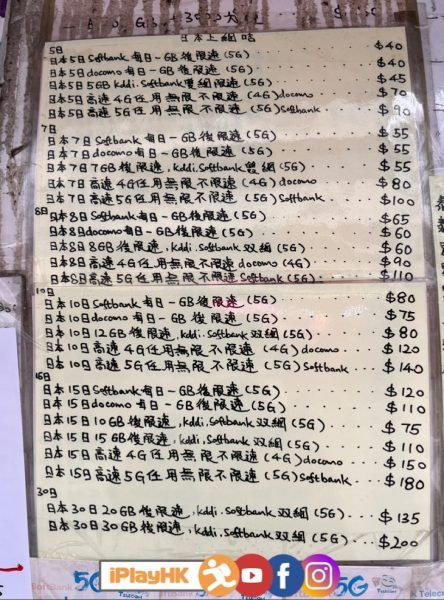 日本上網咭
5日
日本5日Softbank每日一GB後限速(5G) $40
日本5日docomo每日一GB後限速(5G) $40
日本5日5GB kddi.Softbank雙網限速(5G) $45
日本5日高速4G任用無限不限速(4G)docomo $70
日本5日高速5G任用無限不限速(5G)Softbank $90
7日
日本7日Softbank每日一GB後限速(5G) $55
日本7日docomo每日一GB後限速(5G) $55
日本7日7GB後限速,kddi.Softbank雙網(5G) $55
日本7日高速4G任用無限不限速(4G)docomo $80
日本7日高速5G任用無限不限速(5G)Softbank $100
8日
日本8日Softbank每日一GB後限速(5G) $65
日本8日docomo每日一GB後限速(5G) $60
日本8日8GB後限速,kddi.Softbank双網(5G) $60
日本8日高速4G任用無限不限速docomo(4G) $90
日本8日高速5G任用無限不限速Softbank(5G) $110
10日
日本10日Softbank每日一GB後限速(5G) $80
日本10日docomo每日一GB後限速(5G) $75
日本10日12GB後限速,kddi.Softbank双網(5G) $80
日本10日高速4G任用無限不限速(4G)docomo $120
日本10日高速5G任用無限不限速(5G)Softbank $140
15日
日本15日Softbank每日一GB後限速(5G) $120
日本15日docomo每日一GB後限速(5G) $110
日本15日10GB後限速,kddi.Softbank双網(5G) $75
日本15日15GB後限速,kddi.Softbank双網(5G) $110
日本15日高速4G任用無限不限速(4G)docomo $150
日本15日高速5G任用無限不限速(5G)Softbank $180
30日
日本30日20GB後限速,kddi.Softbank双網(5G) $135
日本30日30GB後限速,kddi.Softbank双網(5G) $200
iPlayHK
5G
5G